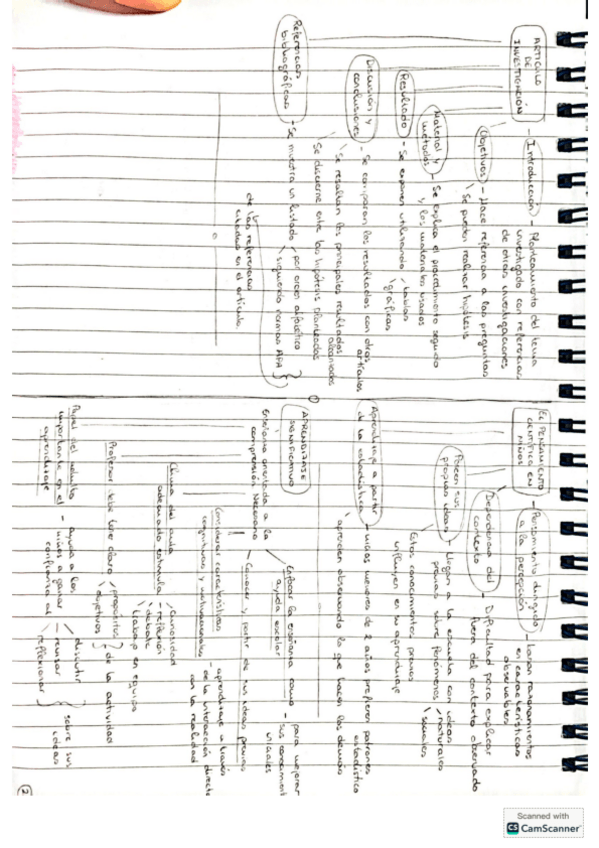 ARTICULO
DE
INVESTIGACIÓN
- Introducción - Planteamiento del tema
investigado con referencias
de otras investigaciones
Objetivos - Hace referencia a las preguntas
Se pueden realizar hipótesis
Material y
métodos - Se explica el procedimiento seguido
y los materiales usados
Resultado - Se exponen utilizando tablas
gráficas
Discusión y
conclusiones - Se comparan los resultados con otros
artículos
Se resaltan los principales resultados
alcanzados
Se discierne entre las hipótesis planteadas
Referencias
bibliográficas - Se muestra un listado por orden alfabético
siguiendo normas APA
de las referencias
citadas en el artículo.
1
EL PENSAMIENTO
CIENTÍFICO EN
NIÑOS
- Pensamiento dirigido
a la percepción - basan razonamientos
en características
observables
Dependencia del
contexto - Dificultad para explicar
fuera del contexto observado
Poseen sus
propias ideas - llegan a la escuela con ideas
previas sobre fenómenos naturales
sociales
Estos conocimientos previos
influyen en su aprendizaje
Aprendizaje a partir
de la estadística - niños menores de 2 años prefieren patrones
estadístico
aprenden observando lo que hacen los demás
APRENDIZAJE
SIGNIFICATIVO
Enseñanza orientada a la
comprensión. Necesario
Enfocar la enseñanza como
ayuda escolar - para mejorar
sus conocimient
iniciales
- Conocer y partir de sus ideas previas
Considerar características
cognitivas y motivacionales - aprendizaje a través
de la interacción directa
con la realidad
Clima del aula
adecuado estimula curiosidad
- reflexión
debate
trabajo en equipo
Profesor debe tener claro propósitos
objetivos de la actividad
Papel del adulto
importante en el
aprendizaje - ayuda a los
niños a ganar
confianza al discutir
pensar
reflexionar sobre sus
ideas
2
Scanned with
CS CamScanner